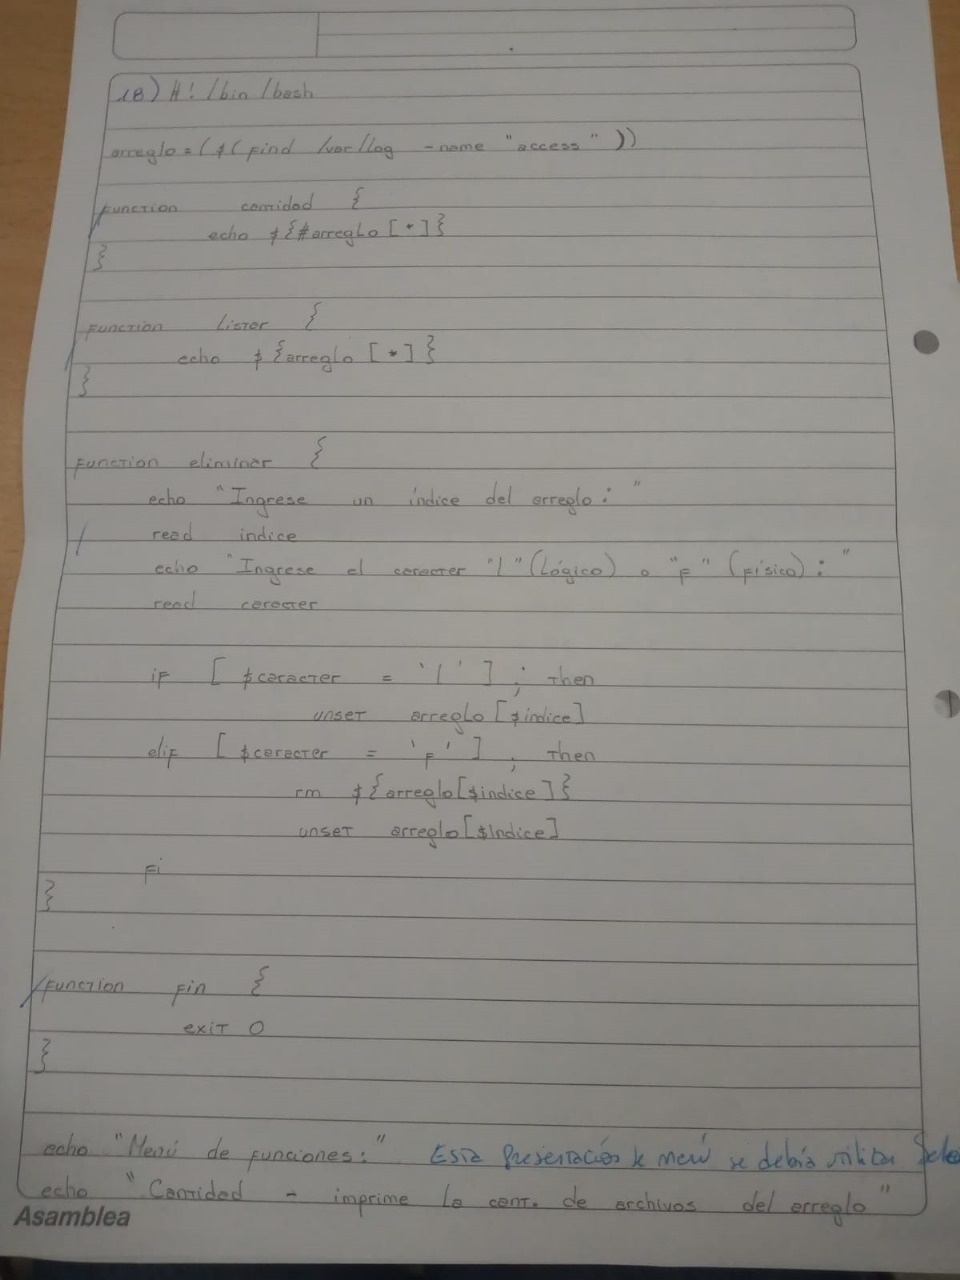 18) #! /bin /bash
arreglo = ( $( find /var/log -name "access" ))
function cantidad {
echo ${#arreglo [*]}
}
function listar {
echo ${arreglo [*]}
}
function eliminar {
echo "Ingrese un índice del arreglo: "
read indice
echo "Ingrese el caracter "l" (Lógico) o "F" (Físico): "
read caracter
if [ $caracter = 'l' ] ; then
unset arreglo [$indice]
elif [ $caracter = 'F' ] ; then
rm ${arreglo[$indice]}
unset arreglo[$indice]
fi
}
function fin {
exit 0
}
echo "Menú de funciones:" Esta Presentación de menú se debía utilizar Sele
echo "Cantidad - imprime la cant. de archivos del arreglo"
Asamblea